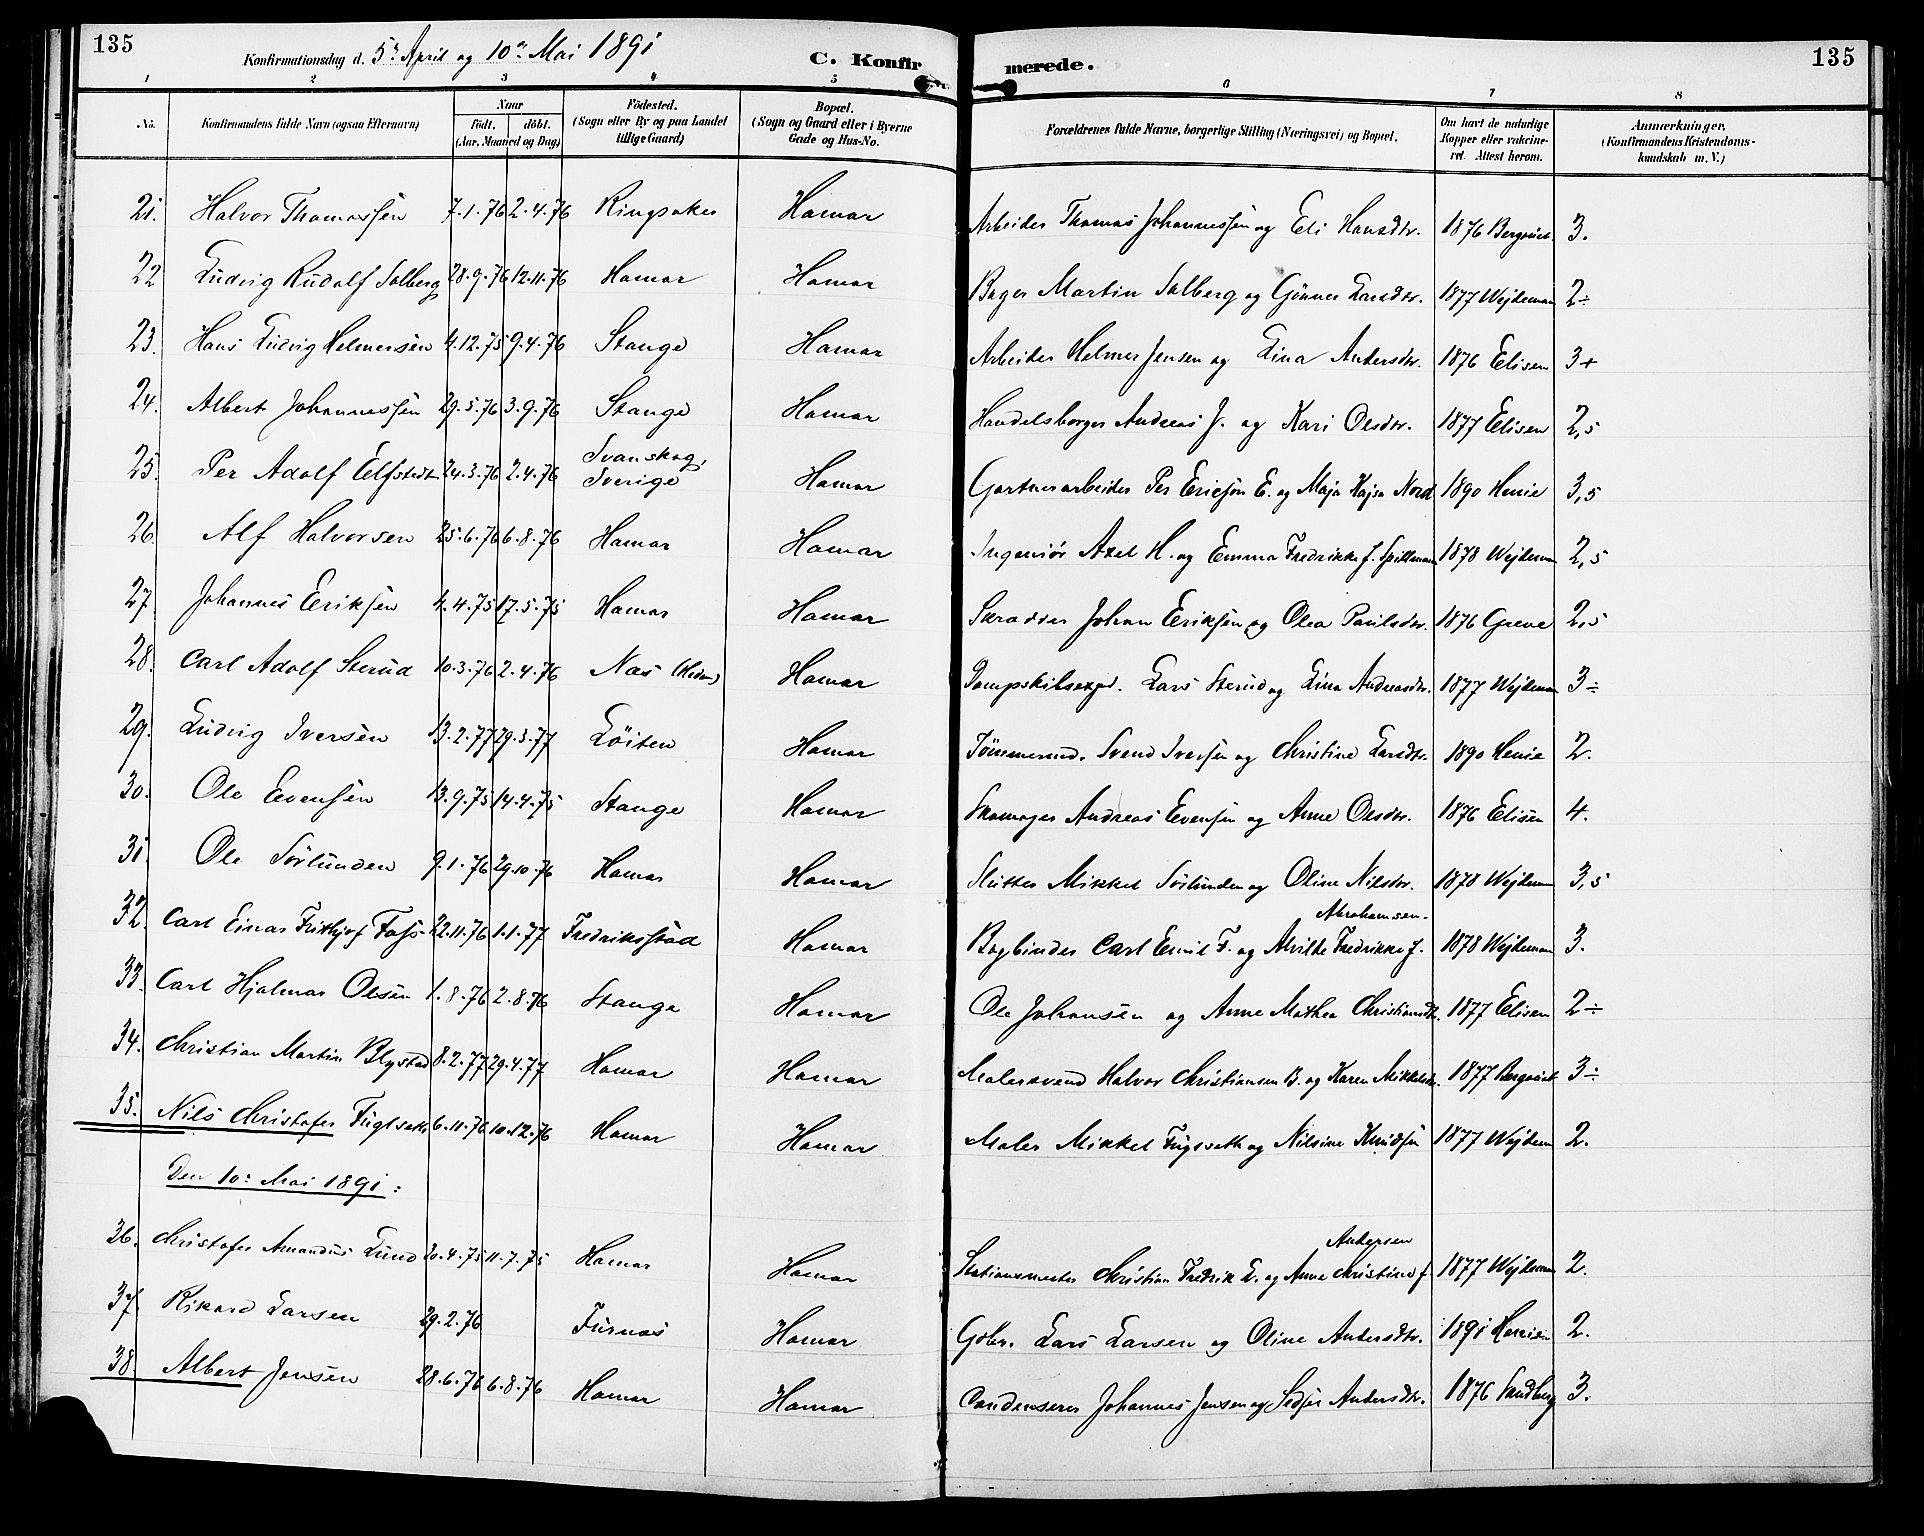 135
Konfirmationsdag d. 5te April og 10de Mai 1891
C. Konfir
merede.
135
1 2 3 4 5 6 7 8
No.
Konfirmandens fulde Navn (ogsaa Efternavn)
Naar
Födt. döbt.
(Aar, Maaned og Dag)
Födested.
(Sogn eller By og paa Landet
tillige Gaard)
Bopæl.
(Sogn og Gaard eller i Byerne
Gade og Hus-No.
Forældrenes fulde Navne, borgerlige Stilling (Næringsvei) og Bopæl.
Om havt de naturlige
Kopper eller vakcine-
ret. Attest herom.
Anmærkninger,
(Konfirmandens Kristendoms-
kundskab m. V.)
21. Halvor Thomassen 7.1.76 2.4.76 Ringsaker Hamar Arbeider Thomas Johannessen og Eli Hansdtr. 1876 Bergquist 3.
22 Ludvig Rudolf Solberg 28.9.76 12.11.76 Hamar Hamar Bager Martin Solberg og Gunner Larsdtr. 1877 Wejdeman 2÷
23. Hans Ludvig Helmersen 4.12.75 9.4.76 Stange Hamar Arbeider Helmer Jensen og Lina Andersdtr. 1876 Elisen 3+
24. Albert Johannessen 29.5.76 3.9.76 Stange Hamar Handelsborger Andreas J. og Kari Olsdtr. 1877 Elisen 2,5
25. Per Adolf Elfstedt 24.3.76 2.4.76 Svanskog, Sverige Hamar Gartnerarbeider Per Ericson E. og Maja Kajsa Nord 1890 Henie 3,5
26 Alf Halvorsen 25.6.76 6.8.76 Hamar Hamar Ingeniör Axel H. og Emma Fredrikke f. Spillmann 1878 Wejdeman 2,5
27. Johannes Eriksen 4.4.75 17.5.75 Hamar Hamar Skrædder Johan Eriksen og Olea Paulsdtr. 1876 Greve 2,5
28. Carl Adolf Sterud 10.3.76 2.4.76 Næs (Hedm) Hamar Dampskibsexped. Lars Sterud og Lina Andreasdtr. 1877 Wejdeman 3÷
29. Ludvig Iversen 13.2.77 29.3.77 Löiten Hamar Tömmermd. Svend Iversen og Christine Larsdtr. 1890 Henie 2.
30. Ole Evensen 13.9.75 14.4.75 Stange Hamar Skomager Andreas Evensen og Anne Olsdtr. 1876 Elisen 4.
31. Ole Sörlunden 9.1.76 29.10.76 Hamar Hamar Slutter Mikkel Sörlunden og Oline Nilsdtr. 1878 Wejdeman 3,5
32. Carl Einar Frithjof Foss 22.11.76 1.1.77 Fredriksstad Hamar Bogbinder Carl Emil F. og Alvilde Fredrikke f. Abrahamsen. 1878 Wejdeman 3.
33. Carl Hjalmar Olsen 1.8.76 2.8.76 Stange Hamar Ole Johansen og Anne Mathea Christiansdtr. 1877 Elisen 2÷
34. Christian Martin Blystad 8.2.77 29.4.77 Hamar Hamar Malersvend Halvor Christiansen B. og Karen Mikkelsdtr. 1877 Bergquist 3÷
35. Nils Christofer Fuglseth 6.11.76 10.12.76 Hamar Hamar Maler Mikkel Fugseth og Nilsine Knudsen 1877 Wejdeman 2.
Den 10de Mai 1891:
36. Christofer Amandus Lund 20.4.75 11.7.75 Hamar Hamar Stationsmester Christian Fredrik L. og Anne Christine f. Andersen 1877 Wejdeman 2.
37. Rikard Larsen 29.2.76 Furnæs Hamar Gbr. Lars Larsen og Oline Andersdtr. 1891 2.
38. Albert Jensen 28.6.76 6.8.76 Hamar Hamar Condenserer Johannes Jensen og Andersdtr. 1876 Sandberg 3.